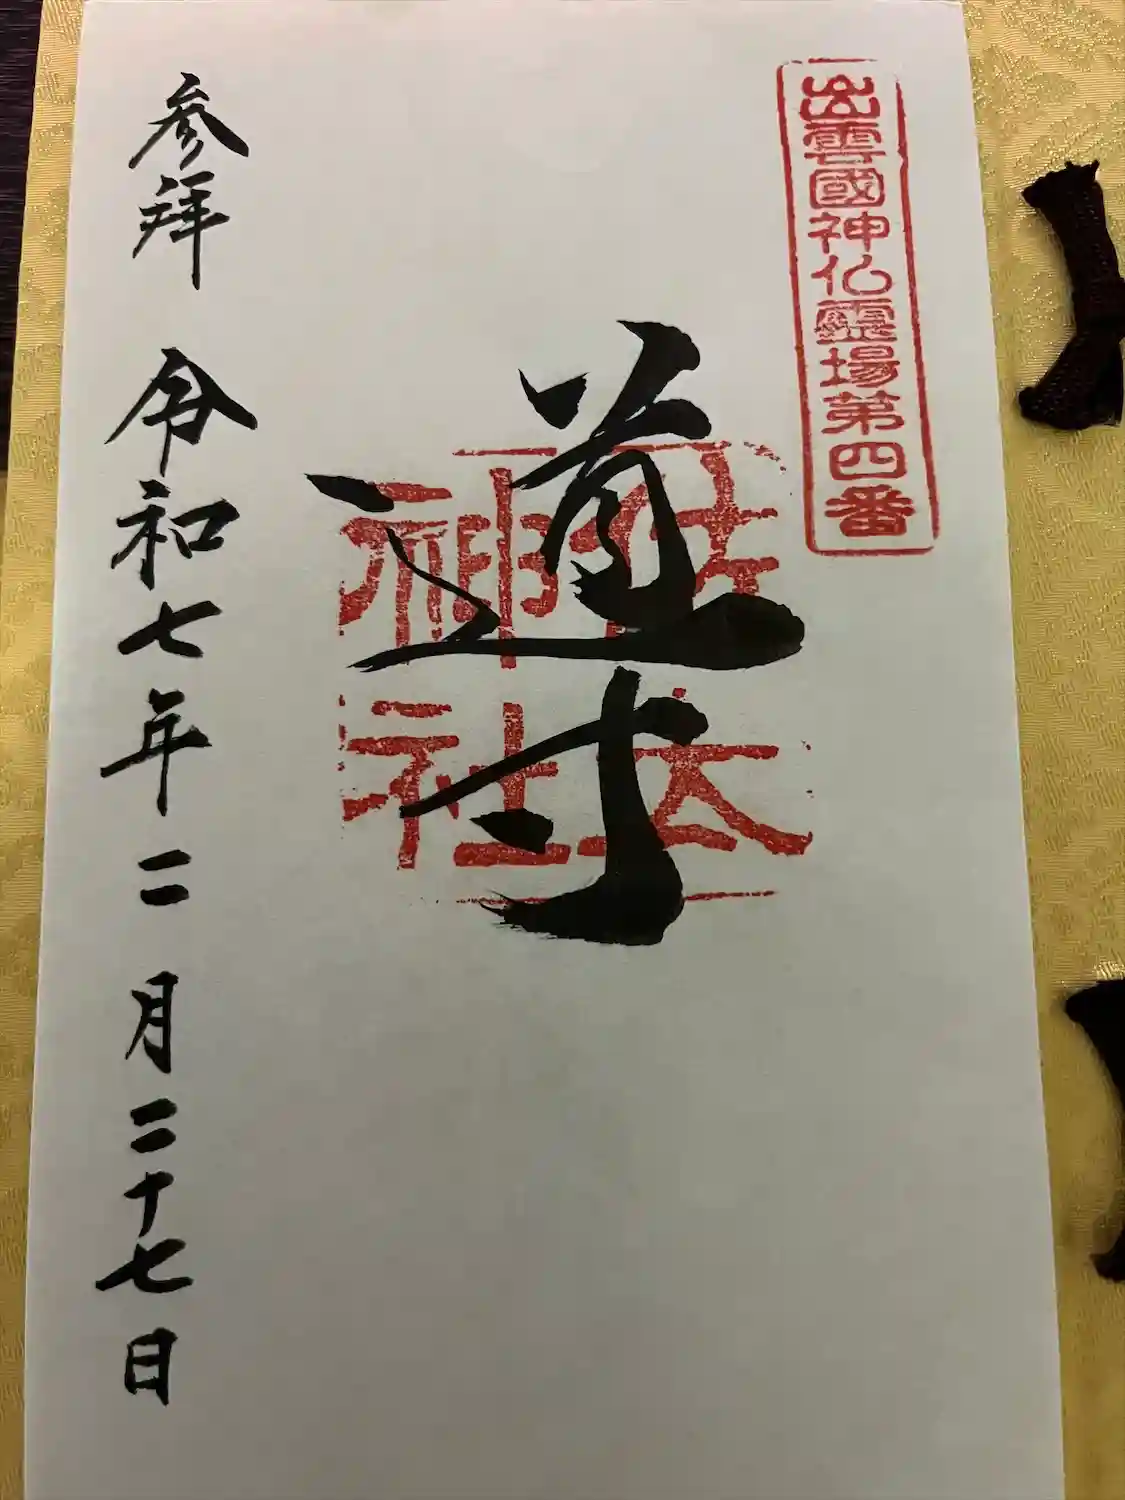 出雲國神仏霊場第四番
導
佐太
神社
参拜
令和七年二月二十七日